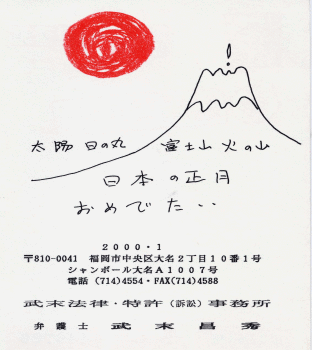 太陽 日の丸　富士山 火の山
日本の正月
おめでたい・・
2000・1
〒810-0041 福岡市中央区大名2丁目10番1号
シャンボール大名A1007号
電話 (714)4554・FAX(714)4588
武末法律・特許(訴訟)事務所
弁護士 武末昌秀